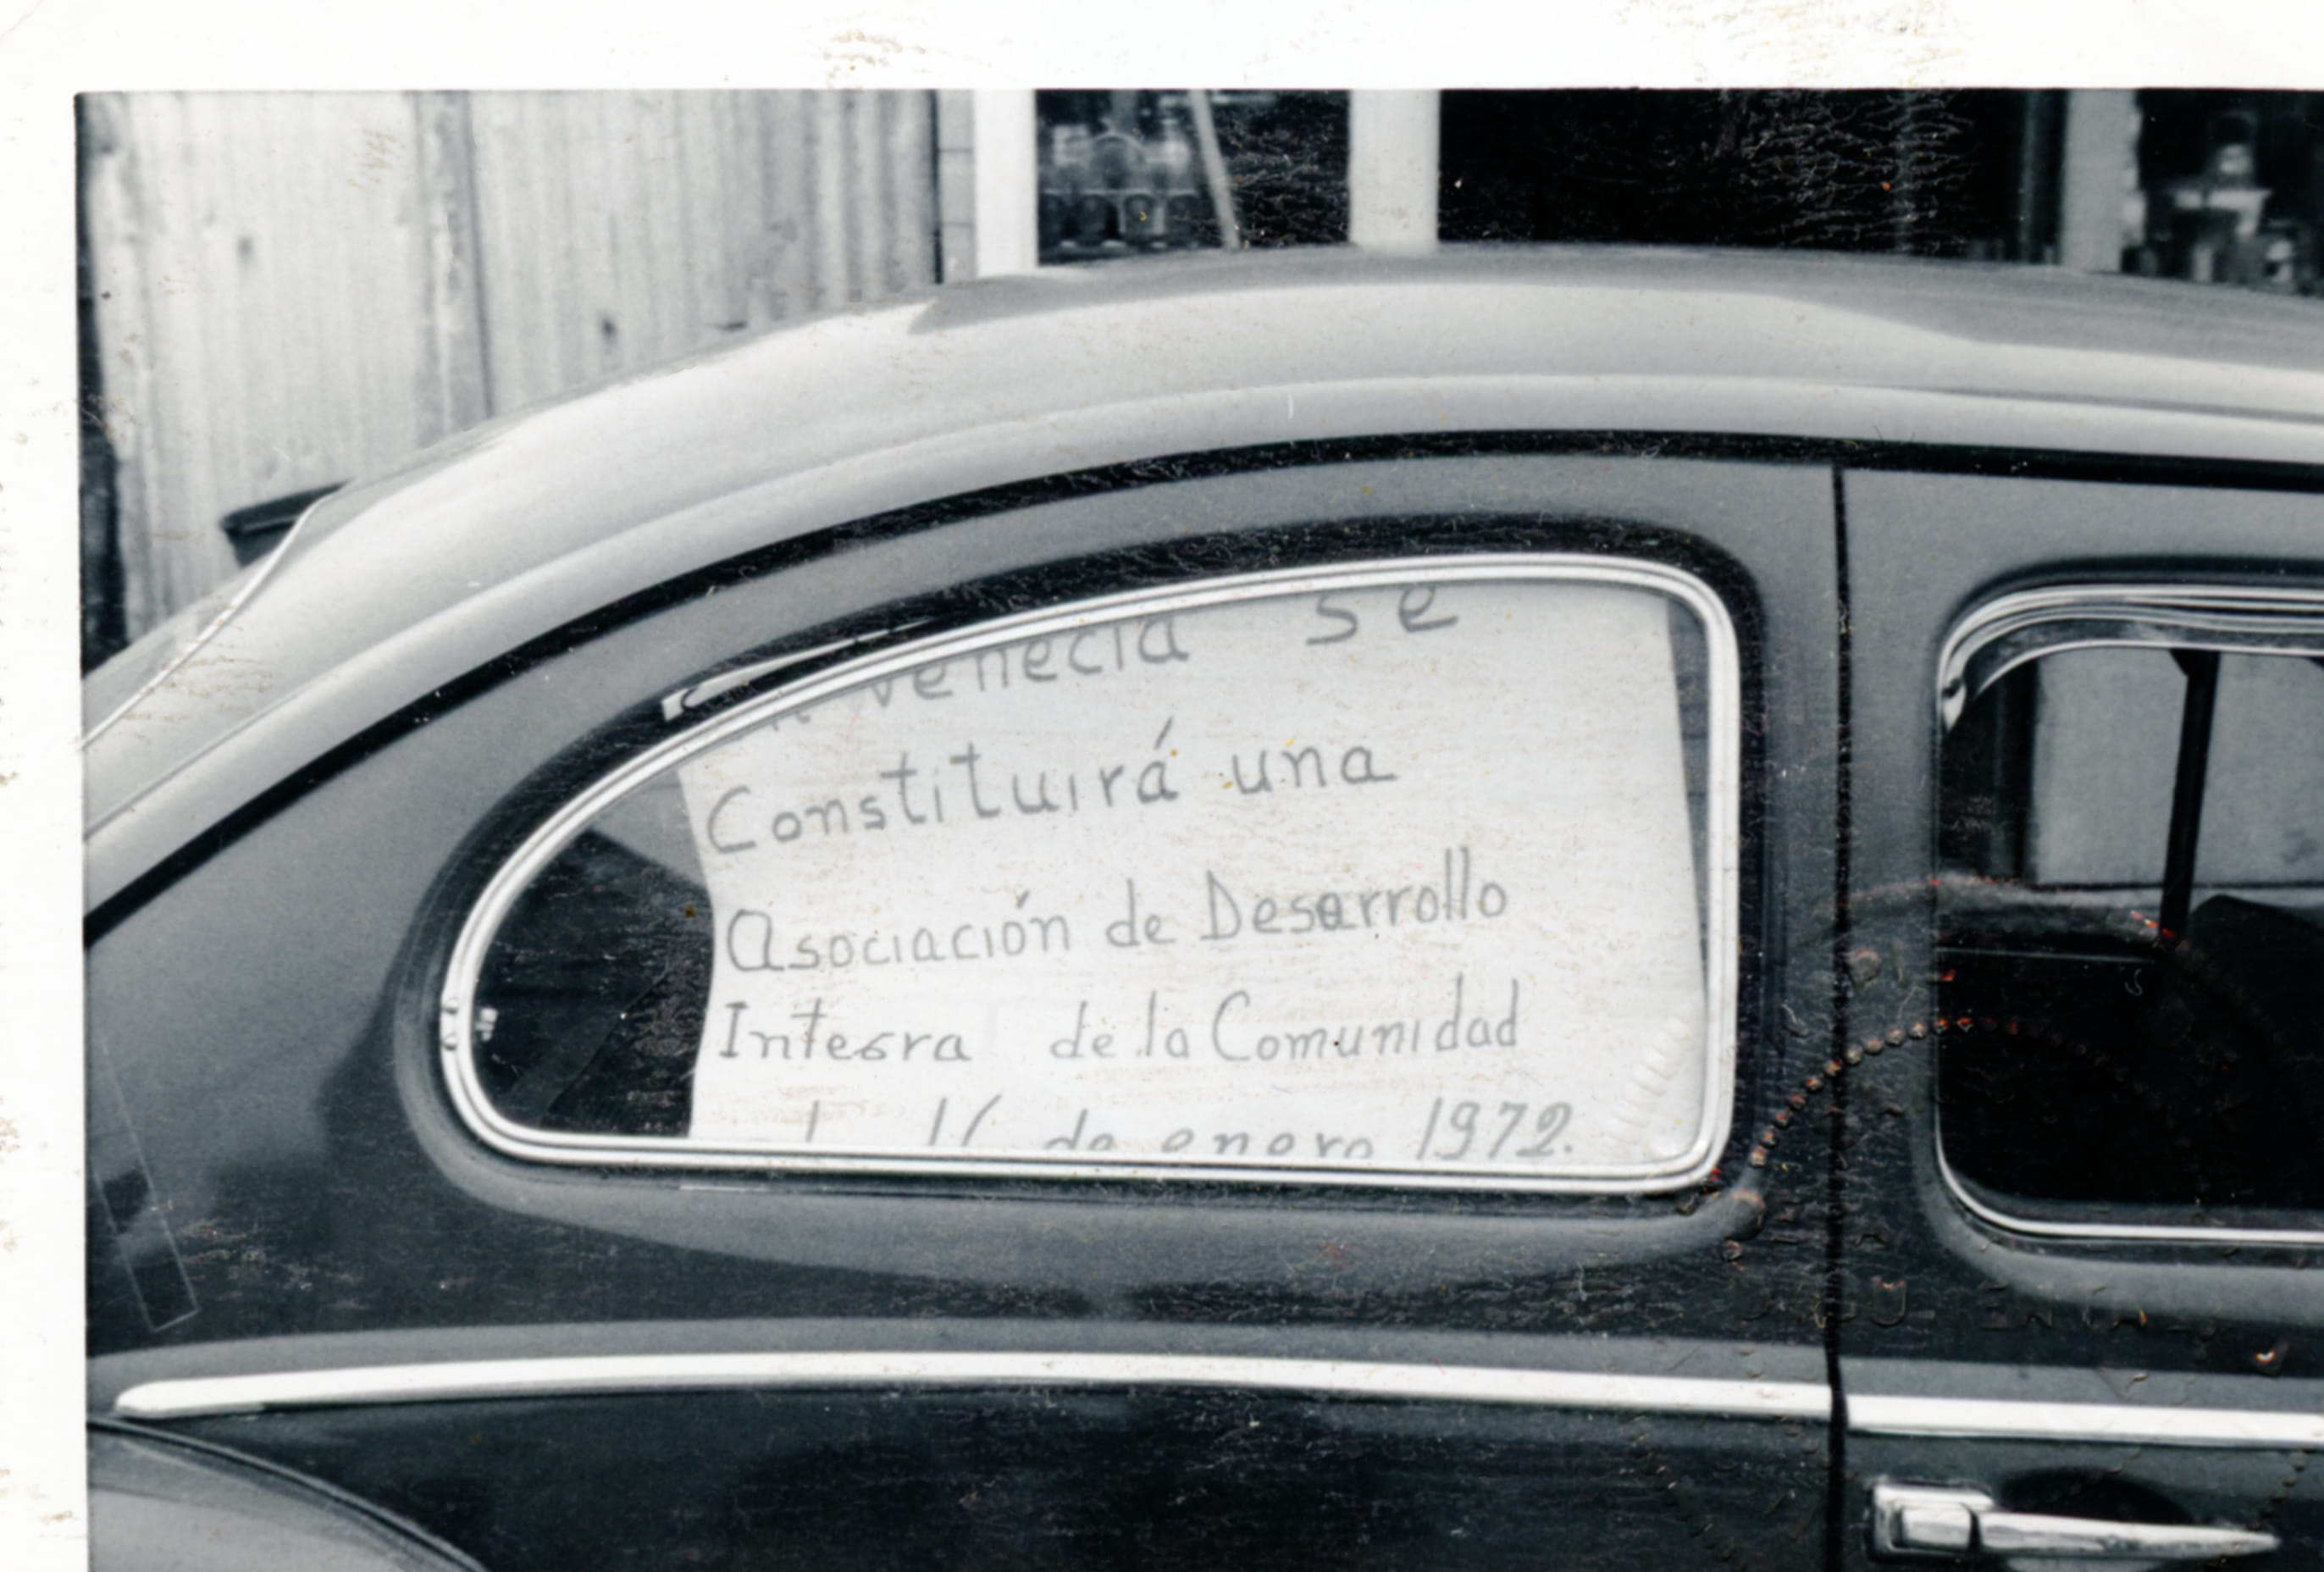 Venecia se
Constituirá una
Asociación de Desarrollo
Integra de la Comunidad
16 de enero 1972.